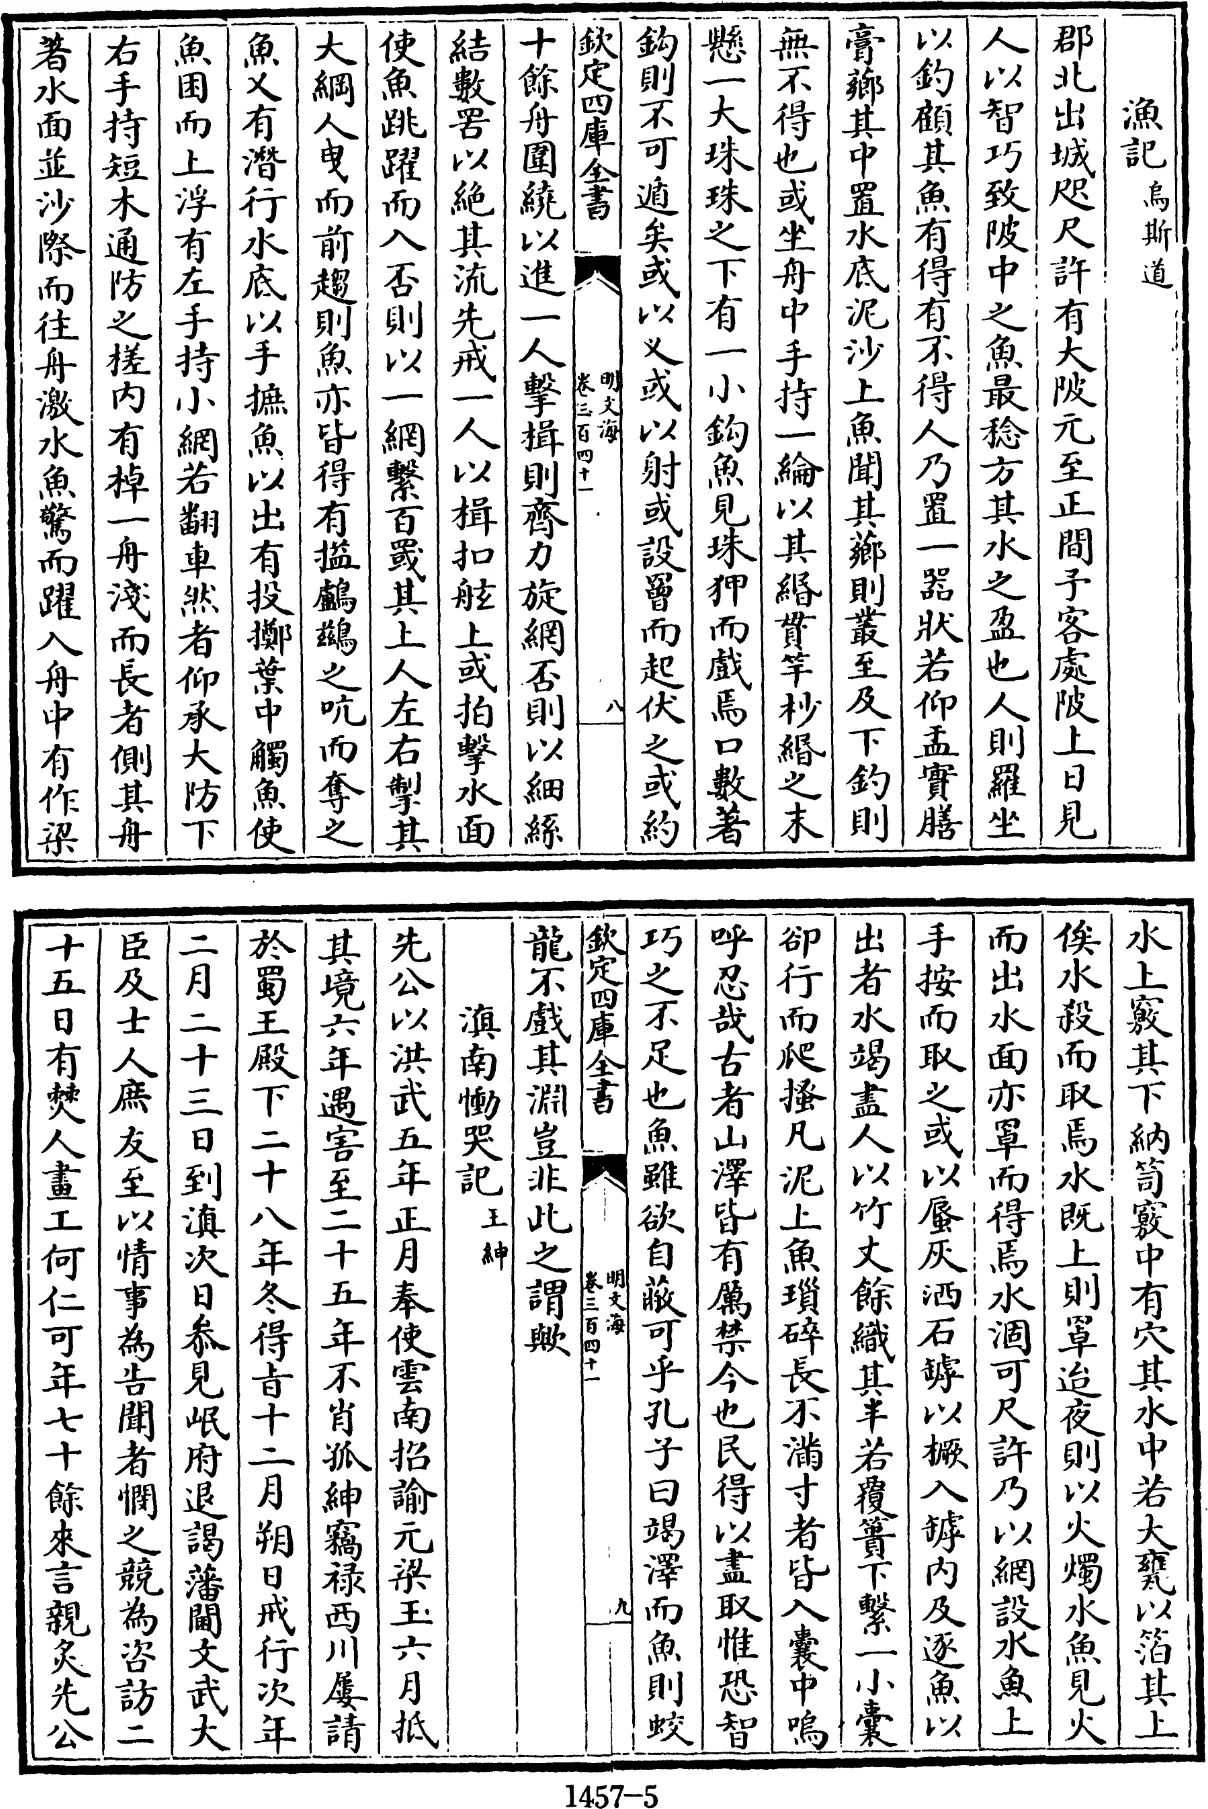 漁記 烏斯道
郡北出城咫尺許有大陂元至正間予客處陂上日見
人以智巧致陂中之魚最稔方其水之盈也人則羅坐
以釣顧其魚有得有不得人乃置一器狀若仰盂實膳
膏薌其中置水底泥沙上魚聞其薌則叢至及下釣則
無不得也或坐舟中手持一綸以其緡貫竿杪緡之末
懸一大珠珠之下有一小鈎魚見珠狎而戲焉口數著
鈎則不可遁矣或以乂或以射或設罾而起伏之或約
欽定四庫全書
明文海
卷三百四十一
八
十餘舟圍繞以進一人擊楫則齊力旋網否則以細絲
結數罟以絶其流先戒一人以楫扣舷上或拍擊水面
使魚跳躍而入否則以一網繫百罭其上人左右掣其
大綱人曳而前趨則魚亦皆得有搤鸕鷀之吭而奪之
魚又有潛行水底以手摭魚以出有投擲葉中觸魚使
魚困而上浮有左手持小網若翻車然者仰承大防下
右手持短木通防之槎内有棹一舟淺而長者側其舟
著水面並沙際而往舟激水魚驚而躍入舟中有作梁
水上竅其下納笱竅中有穴其水中若大甕以箔其上
俟水殺而取焉水既上則罩迨夜則以火燭水魚見火
而出水面亦罩而得焉水涸可尺許乃以網設水魚上
手按而取之或以蜃灰洒石罅以橛入罅内及逐魚以
出者水竭盡人以竹丈餘織其半若覆簣下繫一小囊
卻行而爬搔凡泥上魚瑣碎長不滿寸者皆入囊中嗚
呼忍哉古者山澤皆有厲禁今也民得以盡取惟恐智
巧之不足也魚雖欲自蔽可乎孔子曰竭澤而魚則蛟
欽定四庫全書
明文海
卷三百四十一
九
龍不戲其淵豈非此之謂歟
滇南慟哭記 王紳
先公以洪武五年正月奉使雲南招諭元梁王六月抵
其境六年遇害至二十五年不肖孤紳竊禄西川屢請
於蜀王殿下二十八年冬得旨十二月朔日戒行次年
二月二十三日到滇次日參見岷府退謁藩閫文武大
臣及士人庶友至以情事為告聞者憫之競為咨訪二
十五日有僰人畫工何仁可年七十餘來言親炙先公
1457-5